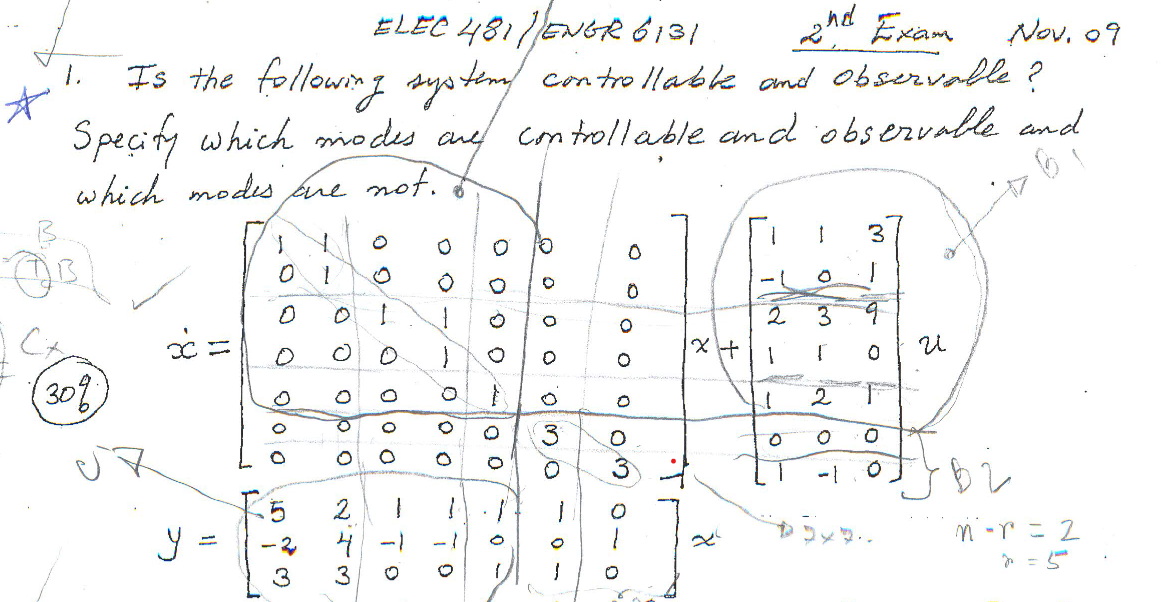 ELEC 481/ENGR 6131 2nd Exam Nov. 09
1. Is the following system controllable and observable?
Specify which modes are controllable and observable and
which modes are not.
B
B
Cx
30%
ẋ =
1 1 0 0 0 0 0
0 1 0 0 0 0 0
0 0 1 1 0 0 0
0 0 0 1 0 0 0
0 0 0 0 1 0 0
0 0 0 0 0 3 0
0 0 0 0 0 0 3
x +
1 1 3
-1 0 1
2 3 9
1 1 0
1 2 1
0 0 0
1 -1 0
u
y =
5 2 1 1 1 1 0
-2 4 -1 -1 0 0 1
3 3 0 0 1 1 0
x
n-r = 2
r = 5